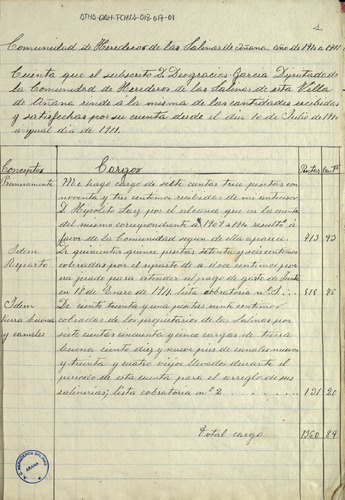 ATHA-DAH-FCHSA-013-017-01
Comunidad de Herederos de las Salinas de Añana, año de 1910 a 1911
Cuenta que el subscrito D. Deogracias Garcia Diputado de
la Comunidad de Herederos de las Salinas de esta Villa
de Añana rinde a la misma de las cantidades recibidas
y satisfechas por su cuenta desde el dia 10 de Julio de 1910
a igual dia de 1911.
Conceptos Cargos Pesetas Cent.s
Primeramente Me hago cargo de siete cientas trece pesetas con
noventa y tres centimos recibidas de mi antecesor
D. Hipolito por el alcance que en la cuenta
del mismo correspondiente a 1909 a 1910 resultó á
favor de la Comunidad segun de ella aparece. 713 93
Idem De quinientas quince pesetas setenta y seis centimos
Reparto cobradas por el reparto de a doce centimos por
para atender al pago de gastos de Junta
en 18 de Enero de 1911 lista cobratoria nº 1. 515 76
Idem De ciento treinta y una pesetas veinte centimos
tierra buena cobradas de los propietarios de las Salinas por
y canales siete cientas cincuenta y cinco cargas de tierra
buena ciento diez y nueve pies de canales nuevos
y treinta y cuatro viejos llevados durante el
periodo de esta cuenta para el arreglo de sus
salinerias; lista cobratoria nº 2. 131 20
Total cargo 1360 89
AÑANA